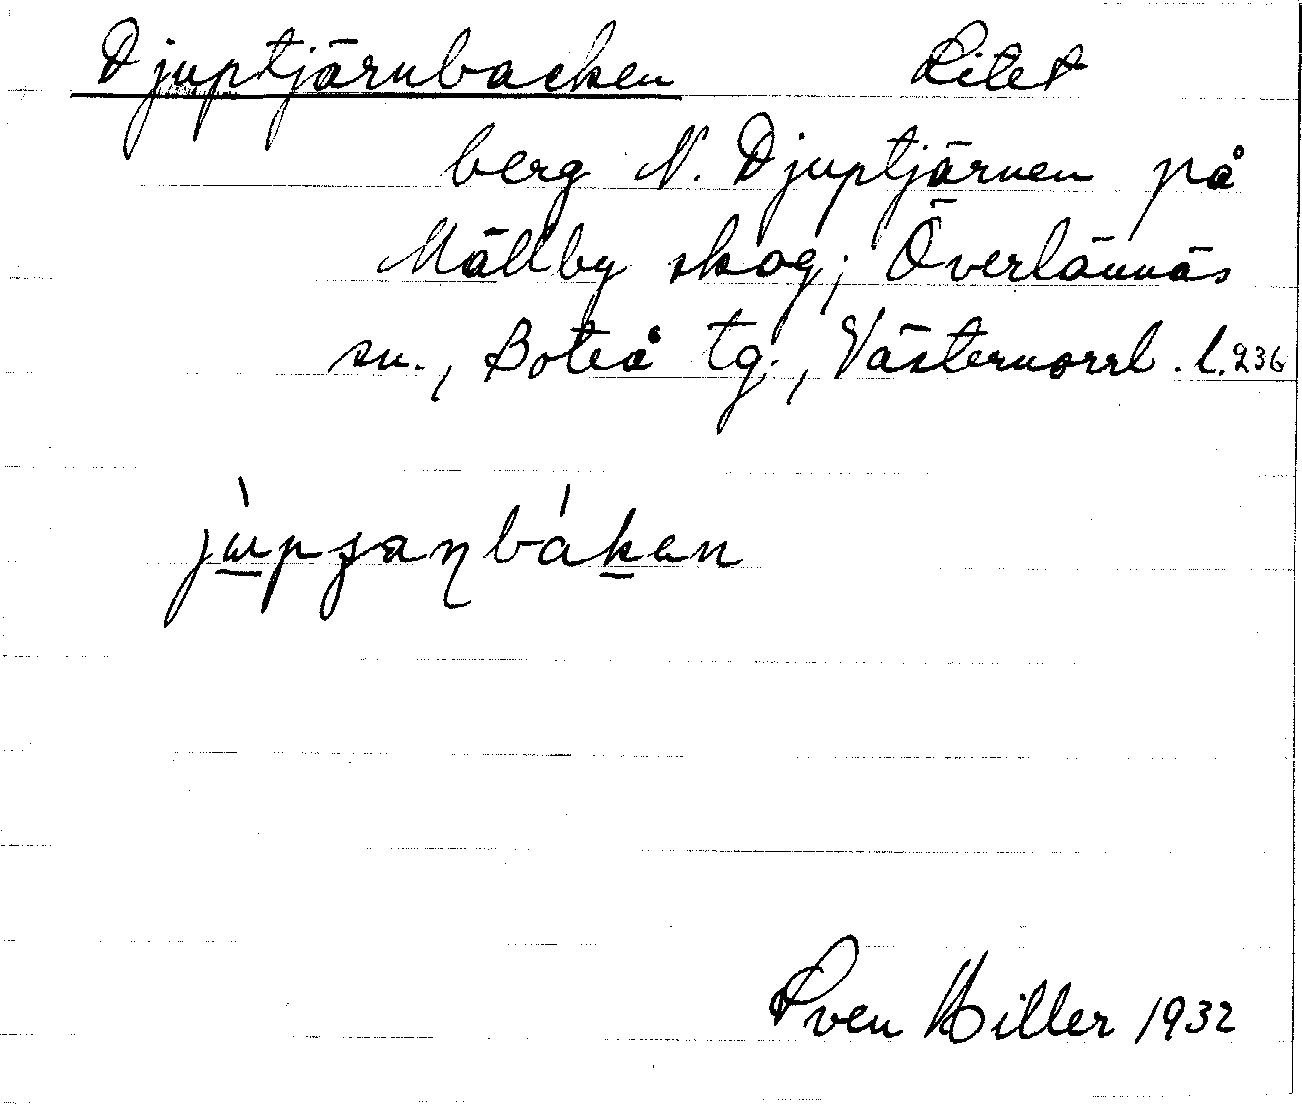 Djuptjärnbacken Litet
berg N. Djuptjärnen på
Mällby skog; Överlännäs
sn., Boteå tg., Västernorrl. l. 236
Sven Hiller 1932